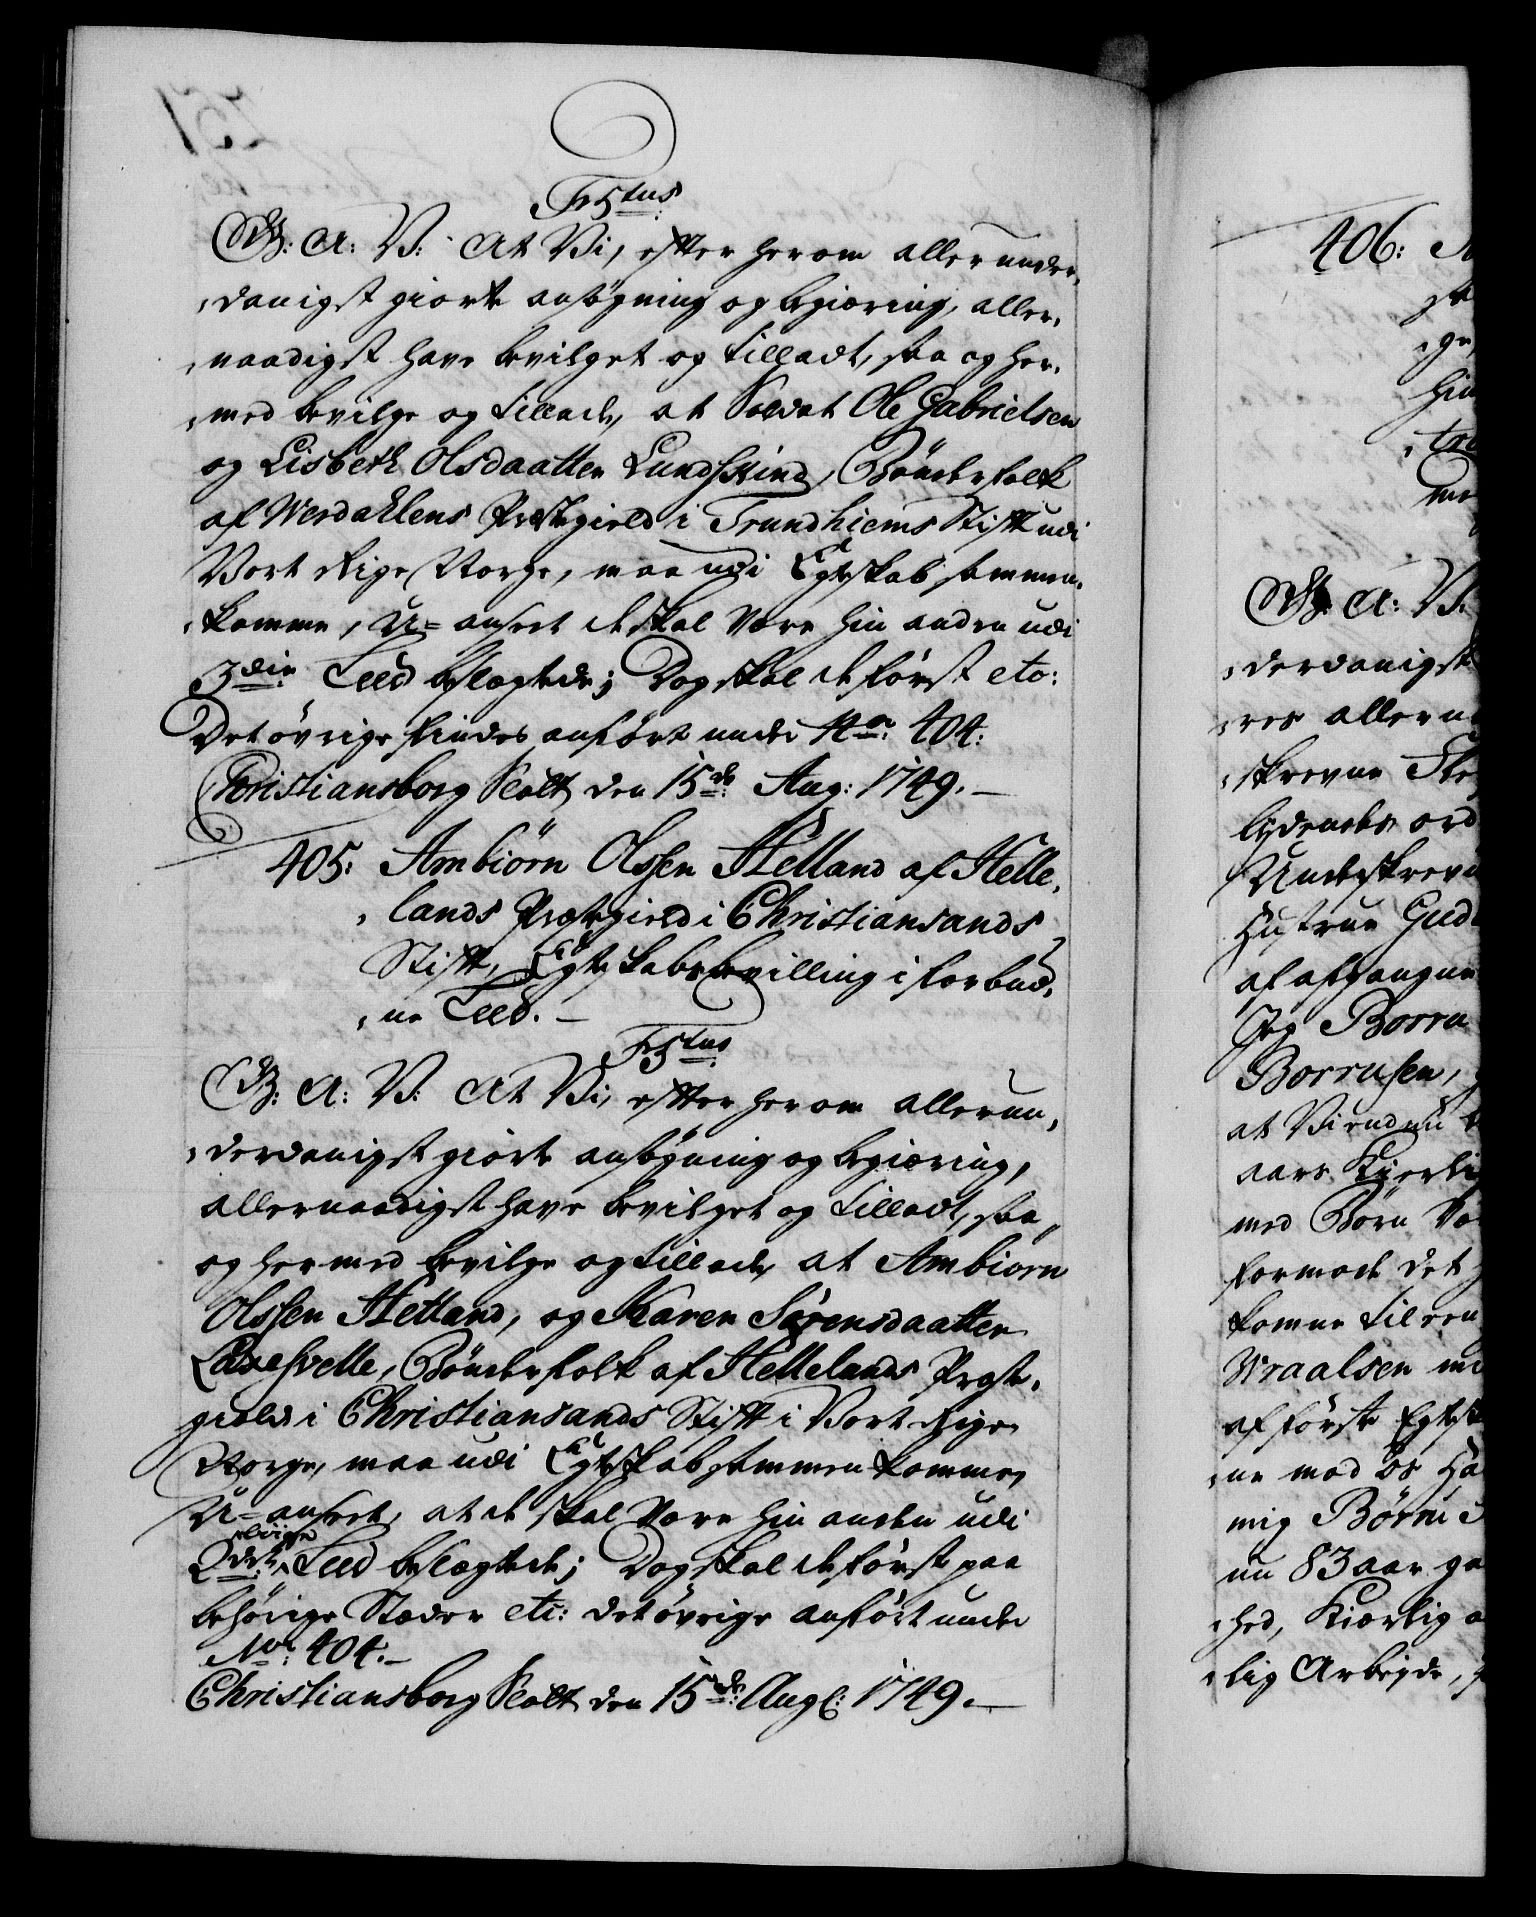 F5tus
G: A: V: At Vi, efter herom allerunder,
,danigst giorte ansögning og begiæring, aller,
,naadigst have bevilget og tilladt, saa og her,
,med bevilge og tillade, at Soldat Ole Gabrielsen
og Lisbeth Olsdaatter Lundskind, Bönderfolk
af Werdahlens Præstegield i Trundhiems Stift udi
Vort Rige Norge, maa udi Egteskab sammen,
,komme, U=anseet de skal være hin anden udi
3die Leed beslægtede; Dog skal de först etc:
Det övrige findes anfört under No: 404:
Christiansborg Slott den 15de Aug: 1749.
405: Ambiörn Olssen Hetland af Helle,
,lands Præstegield i Christiansands
Stift, Egteskabs bevilling i forbud,
,ne Leed.
F5tus
G: A: V: At Vi, efter herom allerun,
,derdanigst giorte ansögning og begiæring,
allernaadigst have bevilget og tilladt, saa
og hermed bevilge og tillade, at Ambiorn
Olssen Hetland, og Karen Sörensdaatter
Bönderfolk af Hellelands Præste,
gield i Christiansands Stift i Vort Rige
Norge, maa udi Egteskab sammen komme,
U=anseet, at de skal være hin anden udi
2det Leed beslægtede; Dog skal de först paa
behörige Stæder etc: det övrige anfört under
No: 404.
Christiansborg Slott den 15de Aug: 1749.
406:
G: A: V:
,derdanigst
,res allern
,skrevne
lydende, ord
Underskrev
Hustrue Gud
af afgangne
Jeg Borru
Borrusen,
at Vi endnu
aars Kierli
med Börn
formode det
komme til een
Wraalsen
af förste Egtesk
,ne med os
mig Börn
nu 83 aar ga
,hed, Kiærlig
,lig Arbejde,